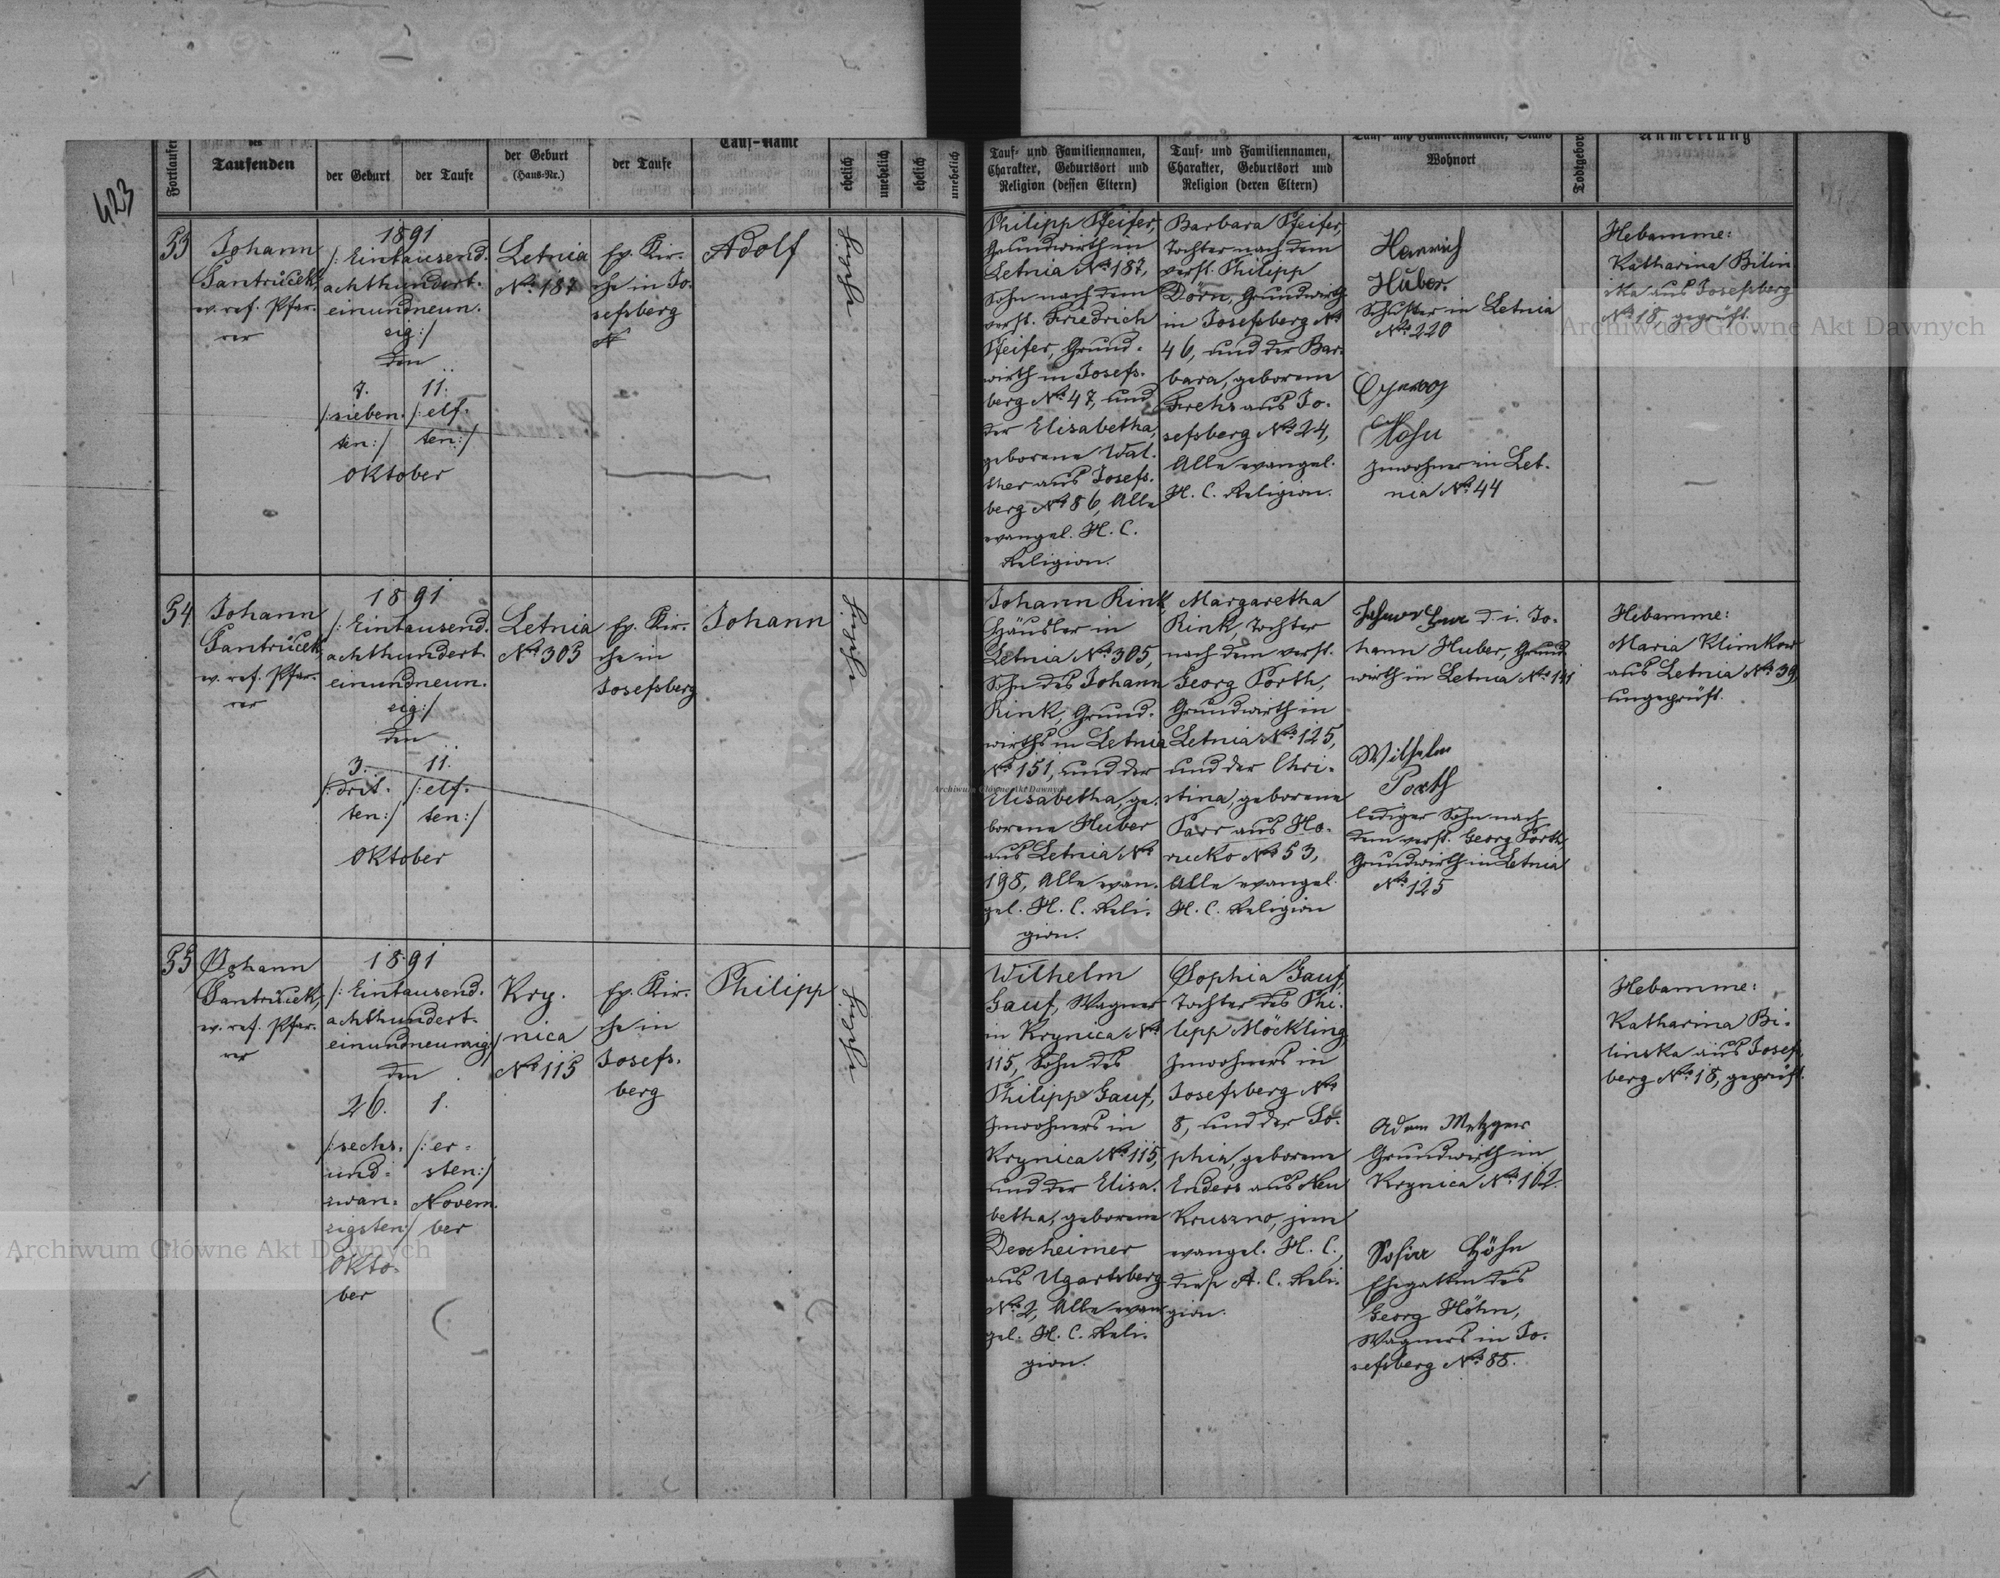 423
Fortlaufen
des
Taufenden
der Geburt
der Taufe
der Geburt
(Haus-Nr.)
der Taufe
Tauf-Name
ehelich
unehelich
ehelich
unehelich
Tauf- und Familiennamen,
Charakter, Geburtsort und
Religion (dessen Eltern)
Tauf- und Familiennamen,
Charakter, Geburtsort und
Religion (deren Eltern)
Tauf- und Familiennamen, Stand
Wohnort
Todtgebor
Anmerkung
53
Johann
Gantrůček,
ev. ref. Pfar-
rer
1891
/: Eintausend.
achthundert.
einundneun.
zig :/
den
7.
/: sieben.
ten :/
11.
/: elf.
ten :/
Oktober
Letnia
No 187
Ev. Kir-
che in Jo-
sefsberg
Adolf
ehelich
Philipp Pfeifer,
Grundwirth in
Letnia No 187,
Sohn nach dem
verst. Friedrich
Pfeifer, Grund-
wirth in Josefs-
berg No 47, und
der Elisabetha,
geborene Wal-
ther aus Josefs-
berg No 86, Alle
evangel. H. C.
Religion.
Barbara Pfeifer,
Tochter nach dem
verst. Philipp
Dörn, Grundwirth
in Josefsberg No
46, und der Bar-
bara, geborene
Frehs aus Jo-
sefsberg No 24,
Alle evangel.
H. C. Religion.
Heinrich
Huber
Schuster in Letnia
No 220
Höhn
Inwohner in Let-
nia No 44
Hebamme:
Katharina Bilin
ska aus Josefsberg
No 18, geprüft.
54
Johann
Gantrůček,
ev. ref. Pfar-
rer
1891
/: Eintausend.
achthundert.
einundneun.
zig :/
den
3.
/: drit.
ten :/
11.
/: elf.
ten :/
Oktober
Letnia
No 305
Ev. Kir-
che in
Josefsberg
Johann
ehelich
Johann Rink
Häusler in
Letnia No 305,
Sohn des Johann
Rink, Grund-
wirths in Letnia
No 151, und der
Elisabetha, ge-
borene Huber
aus Letnia No
198, Alle evan-
gel. H. C. Reli-
gion.
Margaretha
Rink, Tochter
nach dem verst.
Georg Porth,
Grundwirth in
Letnia No 125,
und der Chri-
stina, geborene
Parr aus Ho-
rucko No 53,
Alle evangel.
H. C. Religion
d. i. Jo-
hann Huber, Grund
wirth in Letnia No 141
Wilhelm
Porth
lediger Sohn nach
dem verst. Georg Porth
Grundwirth in Letnia
No 125
Hebamme:
Maria Klimkow
aus Letnia No 39,
ungeprüft.
55
Johann
Gantrůček,
ev. ref. Pfar-
rer
1891
/: Eintausend.
achthundert.
einundneunzig :/
den
26.
/: sechs.
und.
zwan.
zigsten :/
Okto-
ber
1.
/: er-
sten :/
Novem
ber
Kry-
nica
No 115
Ev. Kir-
che in
Josefs-
berg
Philipp
ehelich
Wilhelm
Gauf, Wagner
in Krynica No
115, Sohn des
Philipp Gauf,
Inwohners in
Krynica No 115,
und der Elisa-
betha, geborene
Dexheimer
aus Ugartsberg
No 2, Alle evan
gel. H. C. Reli-
gion.
Sophia Gauf,
Tochter des Phi-
lipp Möckling,
Inwohners in
Josefsberg No
8, und der So-
phia, geborene
Enders aus Neu
Kruszno, jene
evangel. H. C.,
diese A. C. Reli-
gion.
Adam Metzger
Grundwirth in
Krynica No 162.
Sofia Höhn
Ehegattin des
Georg Höhn,
Wagners in Jo-
sefsberg No 88.
Hebamme:
Katharina Bi-
linska aus Josefs
berg No 18, geprüft.
Archiwum Główne Akt Dawnych
Archiwum Główne Akt Dawnych
Archiwum Główne Akt Dawnych